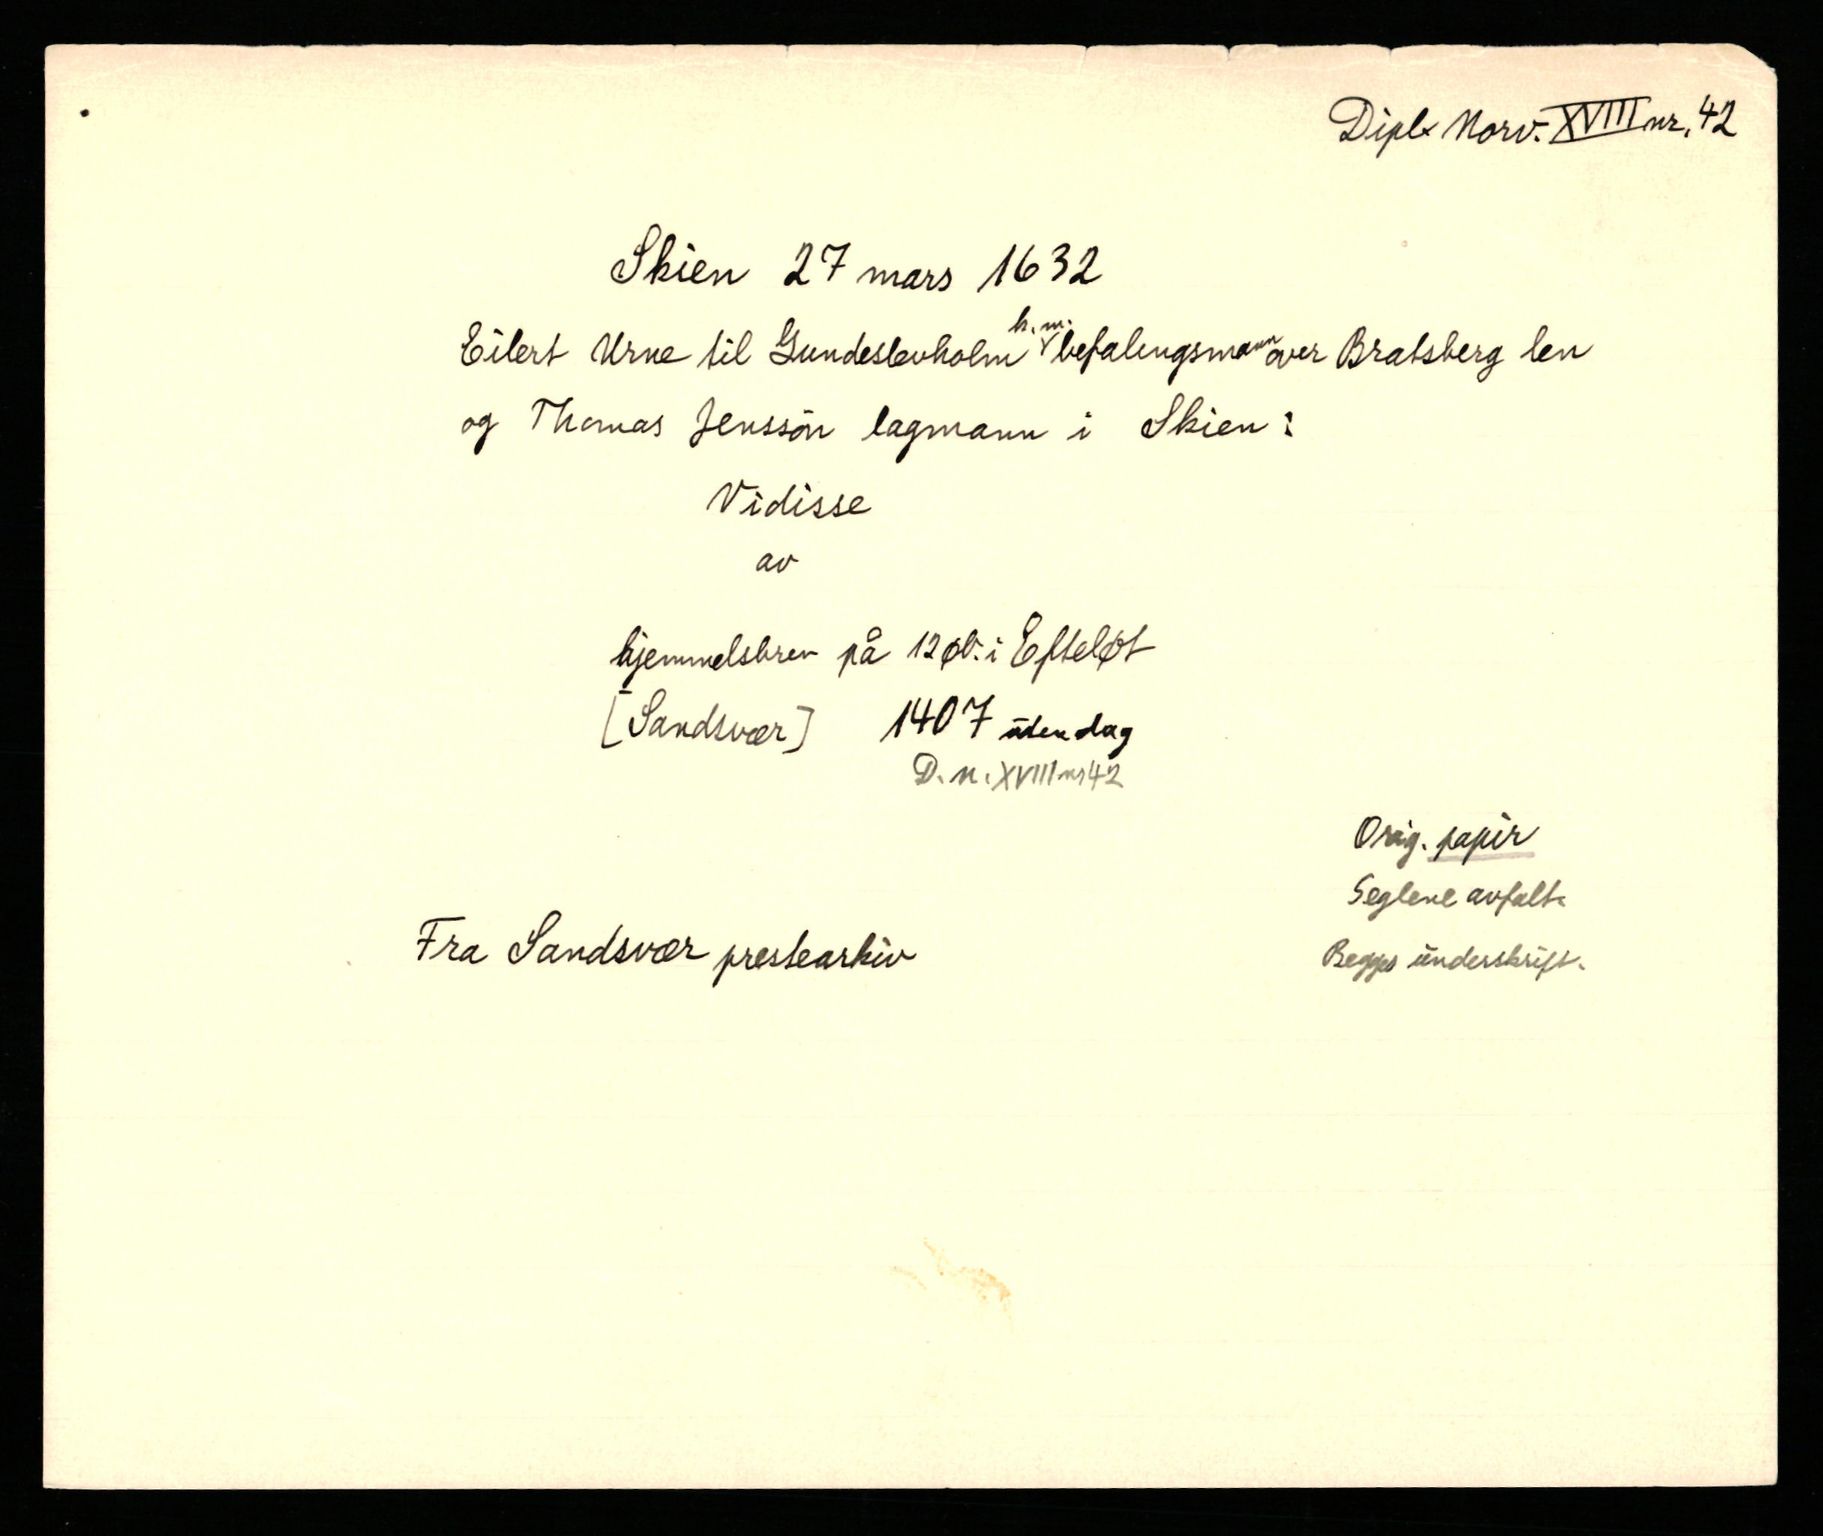 Dipl. Norv. XVIII nr. 42
Skien 27 mars 1632
Eilert Urne til Gundeslevholm h. m. befalingsmann over Bratsberg len
og Thomas Jenssøn lagmann i Skien:
Vidisse
av
hjemmelsbrev på 12 øb. i Efteløt
[Sandsvær] 1407 uten dag
D. n. XVIII nr 42
Orig. papir
Seglene avfalt.
Fra Sandsvær prestearkiv
Begges underskrift.